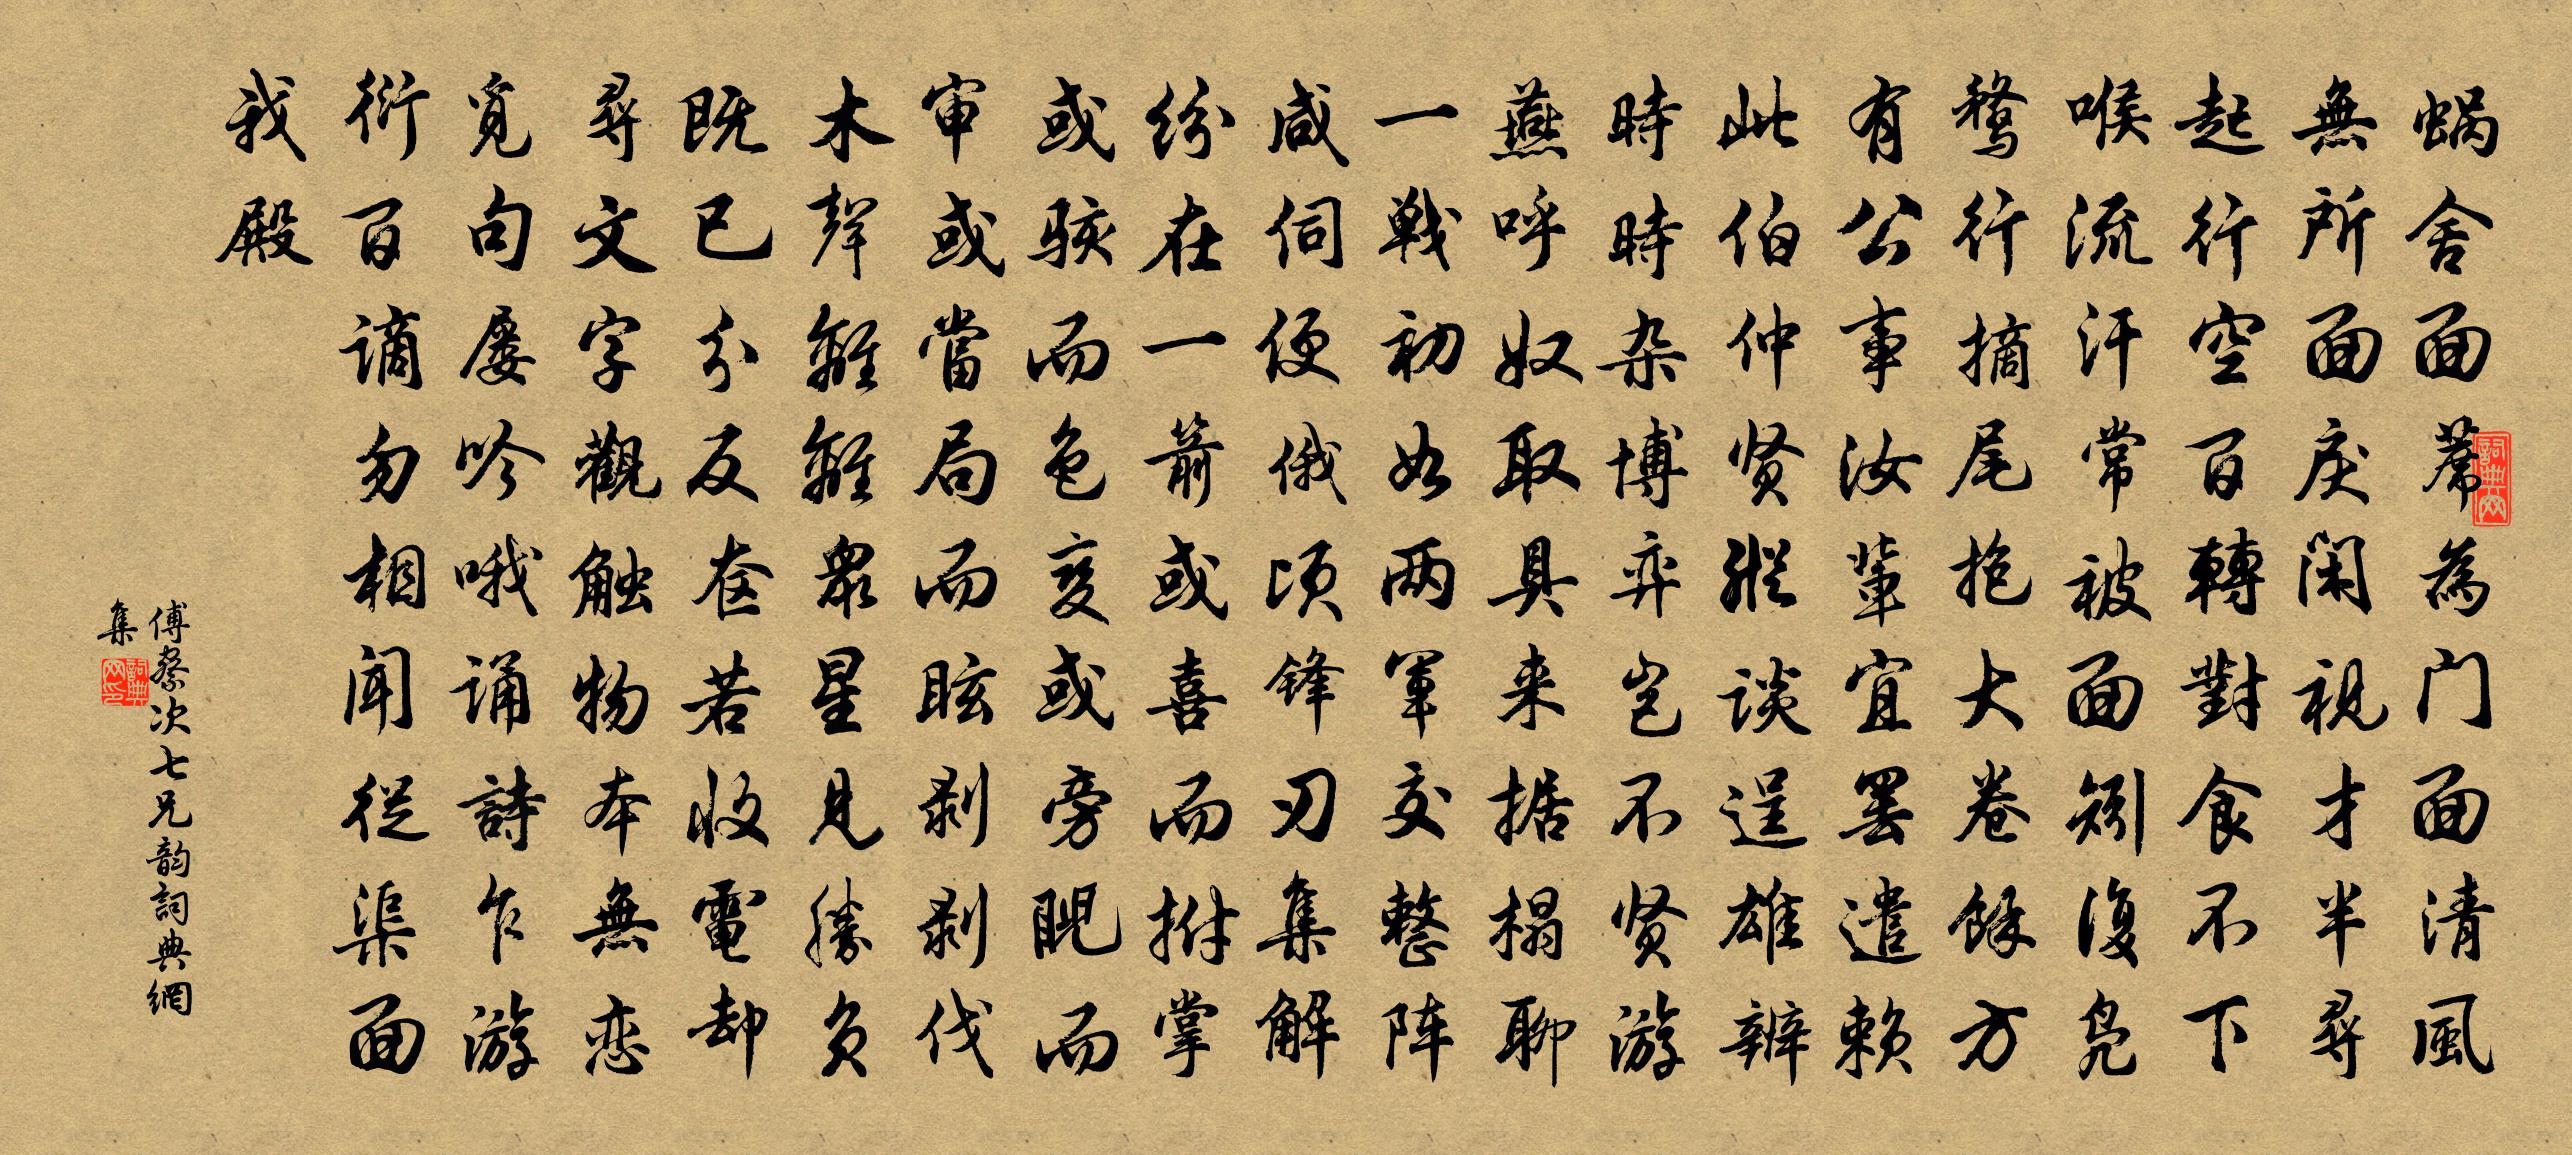 蝸舍面蓆為门面清風
無所面戾閑視才半尋
起行空百轉對食不下
喉流汗常被面矧復鳧
鶩行摘尾抱大卷餘方
有公事汝輩宜罢遣賴
此伯仲贤縱谈逞雄辨
時時杂博弈岂不贤游
燕呼奴取具来据榻聊
一戰初如两軍交整阵
咸伺便俄頃锋刃集解
纷在一箭或喜而拊掌
或骇而色变或旁睨而
审或當局而眩剥剥伐
木聲離離衆星見勝负
既已分反奁若收電却
尋文字觀触物本無恋
覓句屡吟哦诵詩乍游
衍百谪勿相闻從渠面
我殿
傅察次七兄韵詞典網
集
詞典网
詞典网印